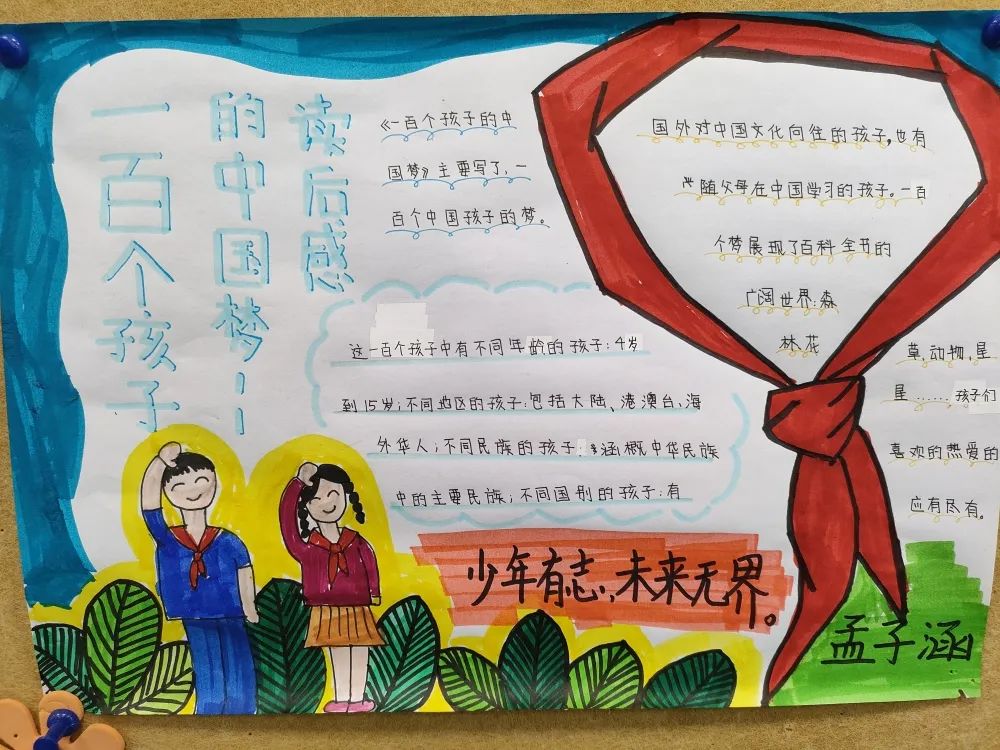 一百个孩子
的中国梦——
读后感
《一百个孩子的中
国梦》主要写了,一
百个中国孩子的梦。
这一百个孩子中有不同年龄的孩子:4岁
到15岁;不同地区的孩子:包括大陆、港澳台、海
外华人;不同民族的孩子:涵概中华民族
中的主要民族;不同国别的孩子:有
国外对中国文化向往的孩子,也有
随父母在中国学习的孩子。一百
个梦展现了百科全书的
广阔世界:森
林花
草,动物,星
星……孩子们
喜欢的热爱的
应有尽有。
少年有志,未来无界。
孟子涵